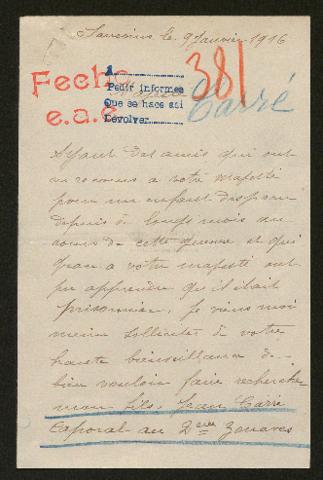 le 9 Janvier 1916
Fecho
e.a.e.
A
Pedir informes
Que se hace ati
Devolver
381
Carré
Ayant des amis qui ont
eu recours a votre majesté
pour un enfant disparu
depuis de longs mois au
cours de cette guerre et qui
grace a votre majesté ont
pu apprendre qu il était
prisonnier, Je viens moi
meme solliciter de votre
haute bienveillance de
bien vouloir faire rechercher
mon fils, Jean Carré
Caporal au 2eme Zouaves